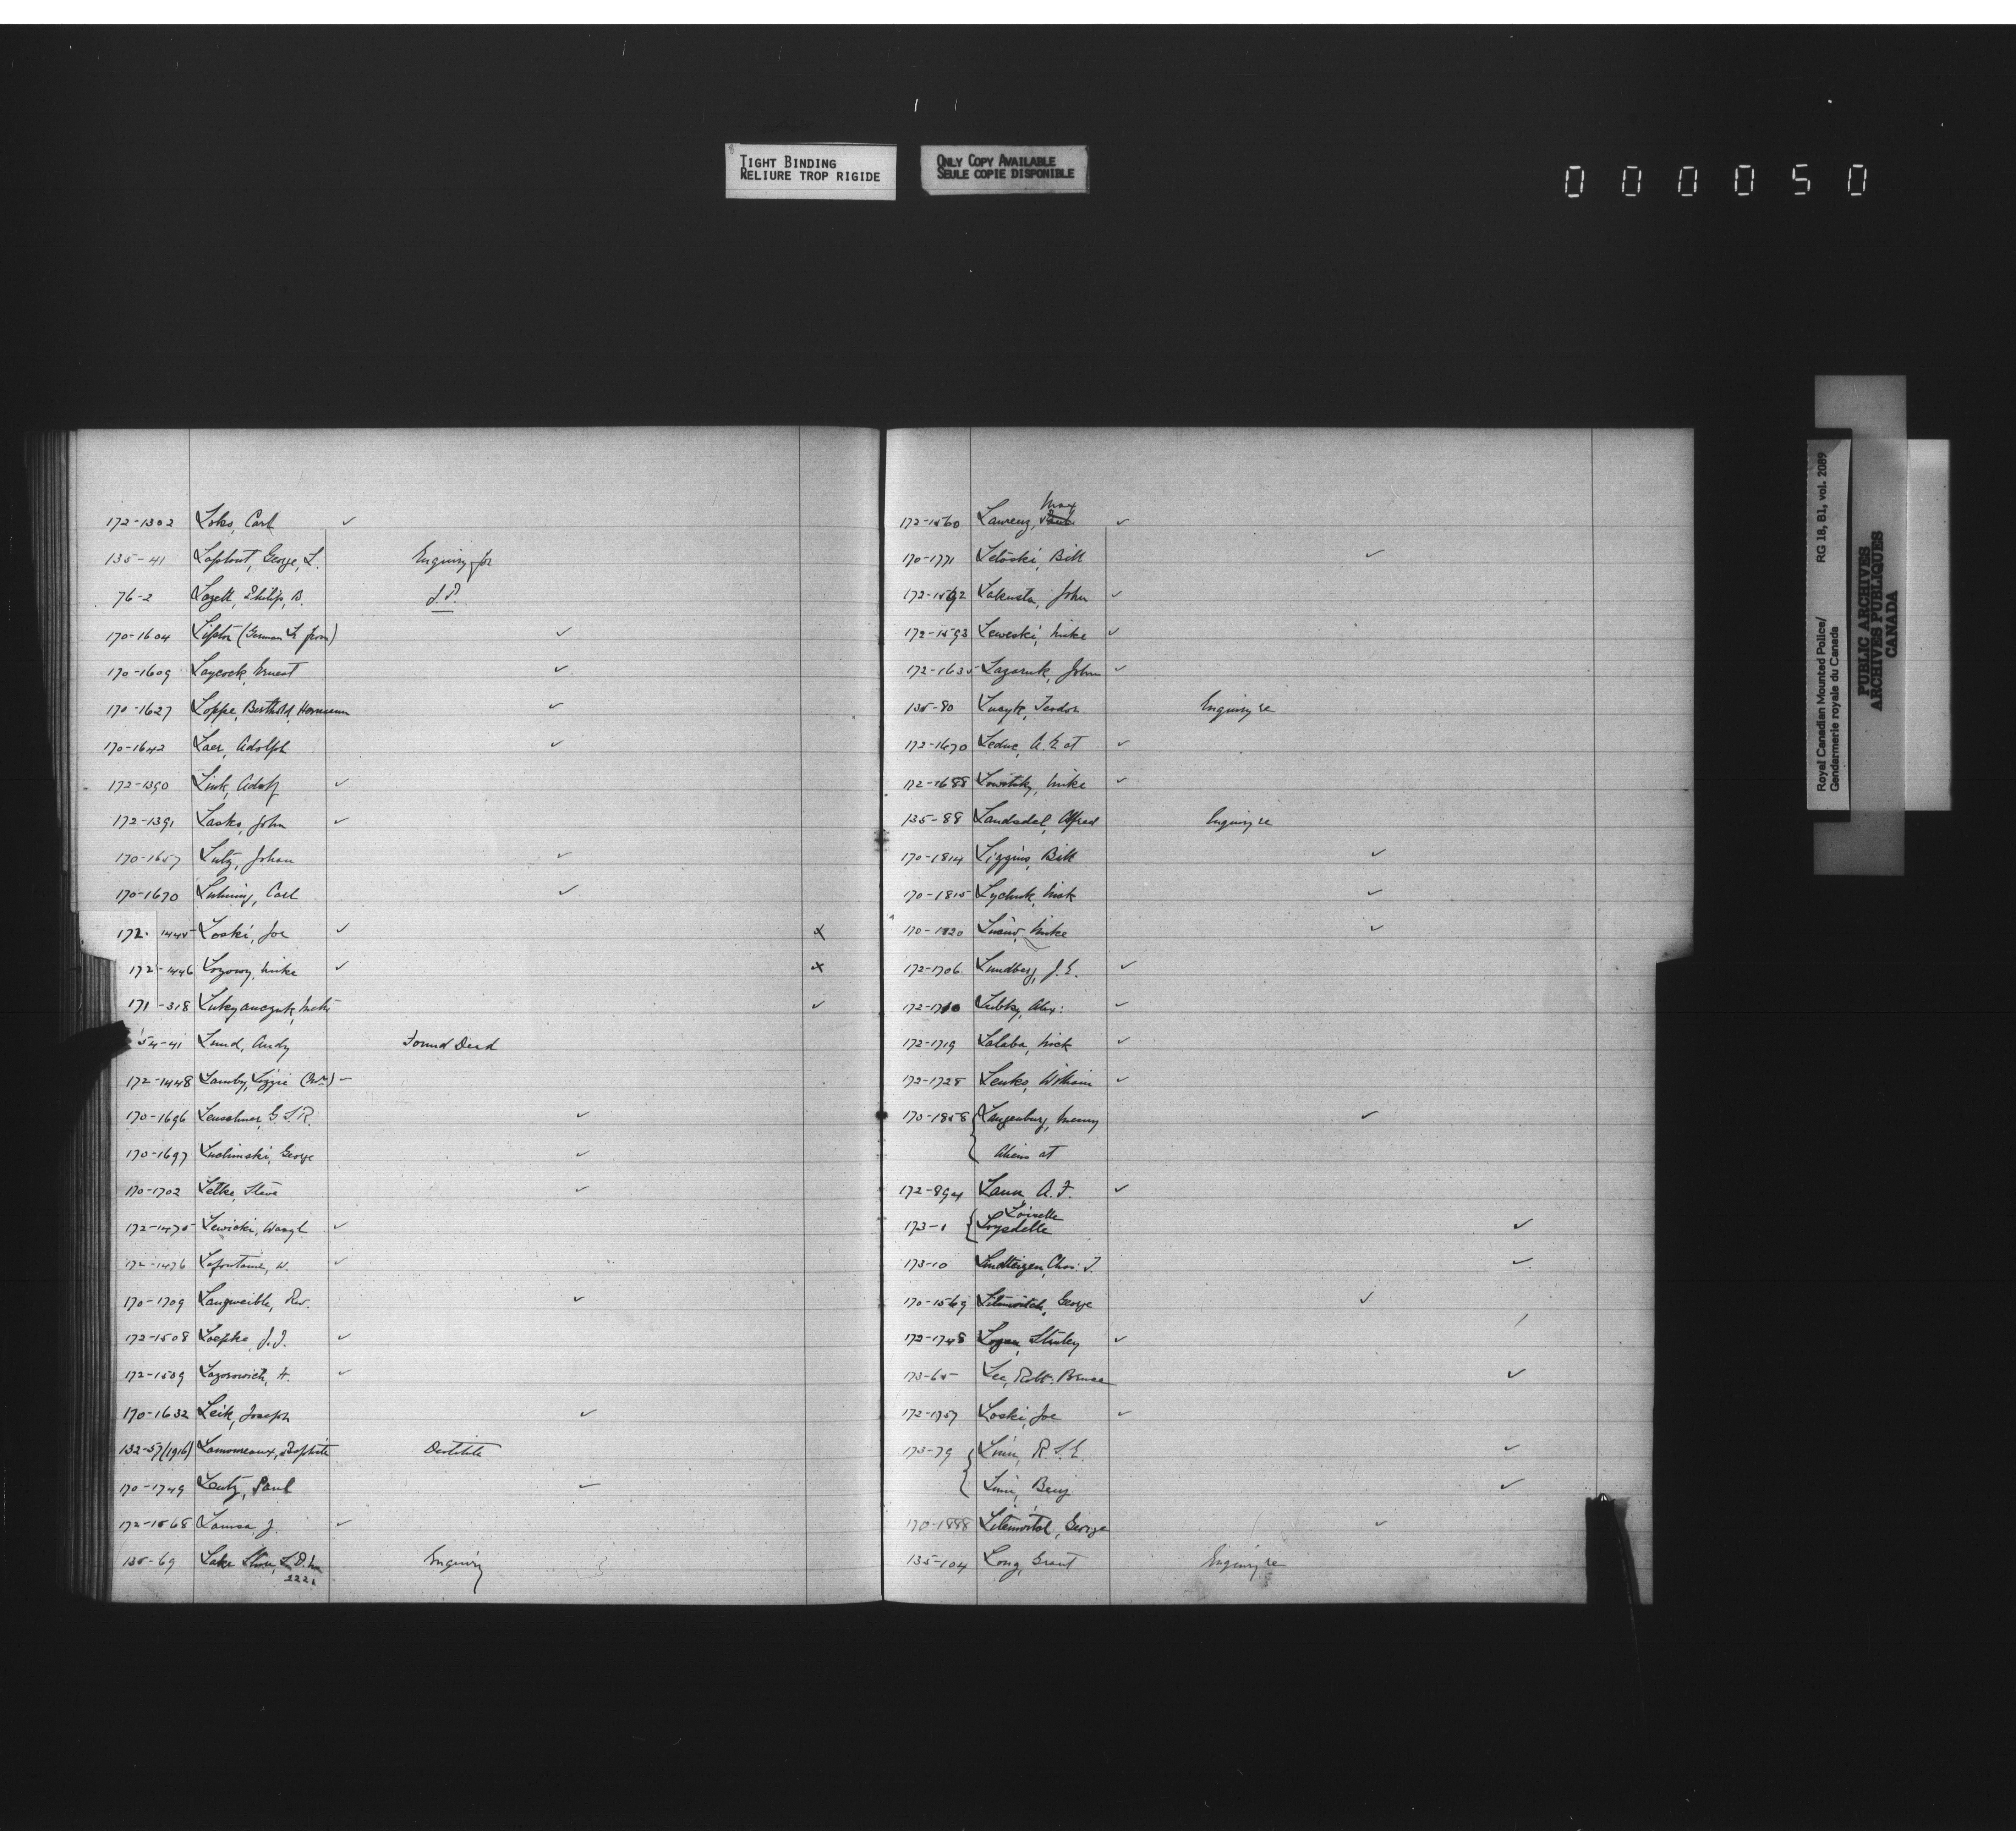 TIGHT BINDING
RELIURE TROP RIGIDE
ONLY COPY AVAILABLE
SEULE COPIE DISPONIBLE
000050
Royal Canadian Mounted Police/ RG 18, B1, vol. 2089
Gendarmerie royale du Canada
PUBLIC ARCHIVES
ARCHIVES PUBLIQUES
CANADA
172-1302 Loks, Carl ✓
135-41 George, L. Enquiry for
76-2 Lazell, Philip, B. J.P.
170-1604 Lipton (German from) ✓
170-1609 Laycock, Ernest ✓
170-1627 Loppe, Berthold, Hermann ✓
170-1642 Laer, Adolph ✓
172-1390 Link, Adolf ✓
172-1391 Lasko, John ✓
170-1657 Lutz, Johan ✓
170-1670 Carl ✓
172-1445 Loski, Joe ✓ x
172-1446 Lozowy, Mike ✓ x
171-318 ✓
54-41 Lund, Andy Found Dead
172-1448 Lamby, Lizzie (Mrs)
170-1696 Leuschner, G.S.R. ✓
170-1697 Luchinski, George ✓
170-1702 Letke, Steve ✓
172-1475 Lewicki, Wasyl ✓
172-1476 Lafontaine, W. ✓
170-1709 Rev. ✓
172-1508 Loepke, J.J. ✓
172-1509 Lazorowich, H. ✓
170-1632 Leik, Joseph ✓
132-57 (1916) Lamoureaux, Baptiste Destitute
170-1749 Lentz, Paul ✓
172-1568 J. ✓
135-69 Lake Enquiry
2221
Max
172-1560 Laurenz, Paul ✓
170-1771 Bill ✓
172-1592 Lakusta, John ✓
172-1593 Leweski, Mike ✓
172-1635 Lazaruk, John ✓
135-80 Lucyk, Teodor Enquiry re
172-1670 Leduc, A.E. at ✓
172-1688 Mike ✓
135-88 Landsdel, Alfred Enquiry re
170-1814 Liggins, Bill ✓
170-1815 Lychuk, Nick ✓
170-1820 Mike ✓
172-1706 Lundberg, J.E. ✓
172-1710 Lubky, Alex: ✓
172-1719 Lalaba, Nick ✓
172-1728 Lenko, William ✓
170-1858 { Langenburg, Enemy ✓
Aliens at
172-894 Laun, A.F. ✓
Loiselle
173-1 { Loysdelle ✓
173-10 Lindteigen, Chas: J. ✓
170-1569 Litmovitch, George ✓
172-1748 Logan, Stanley ✓
173-65 Lee, Robt. Bruce ✓
172-1757 Loski, Joe ✓
173-79 { Linn, R.S.E. ✓
Linn, Benj ✓
170-1888 George ✓
135-104 Long, Grant Enquiry re